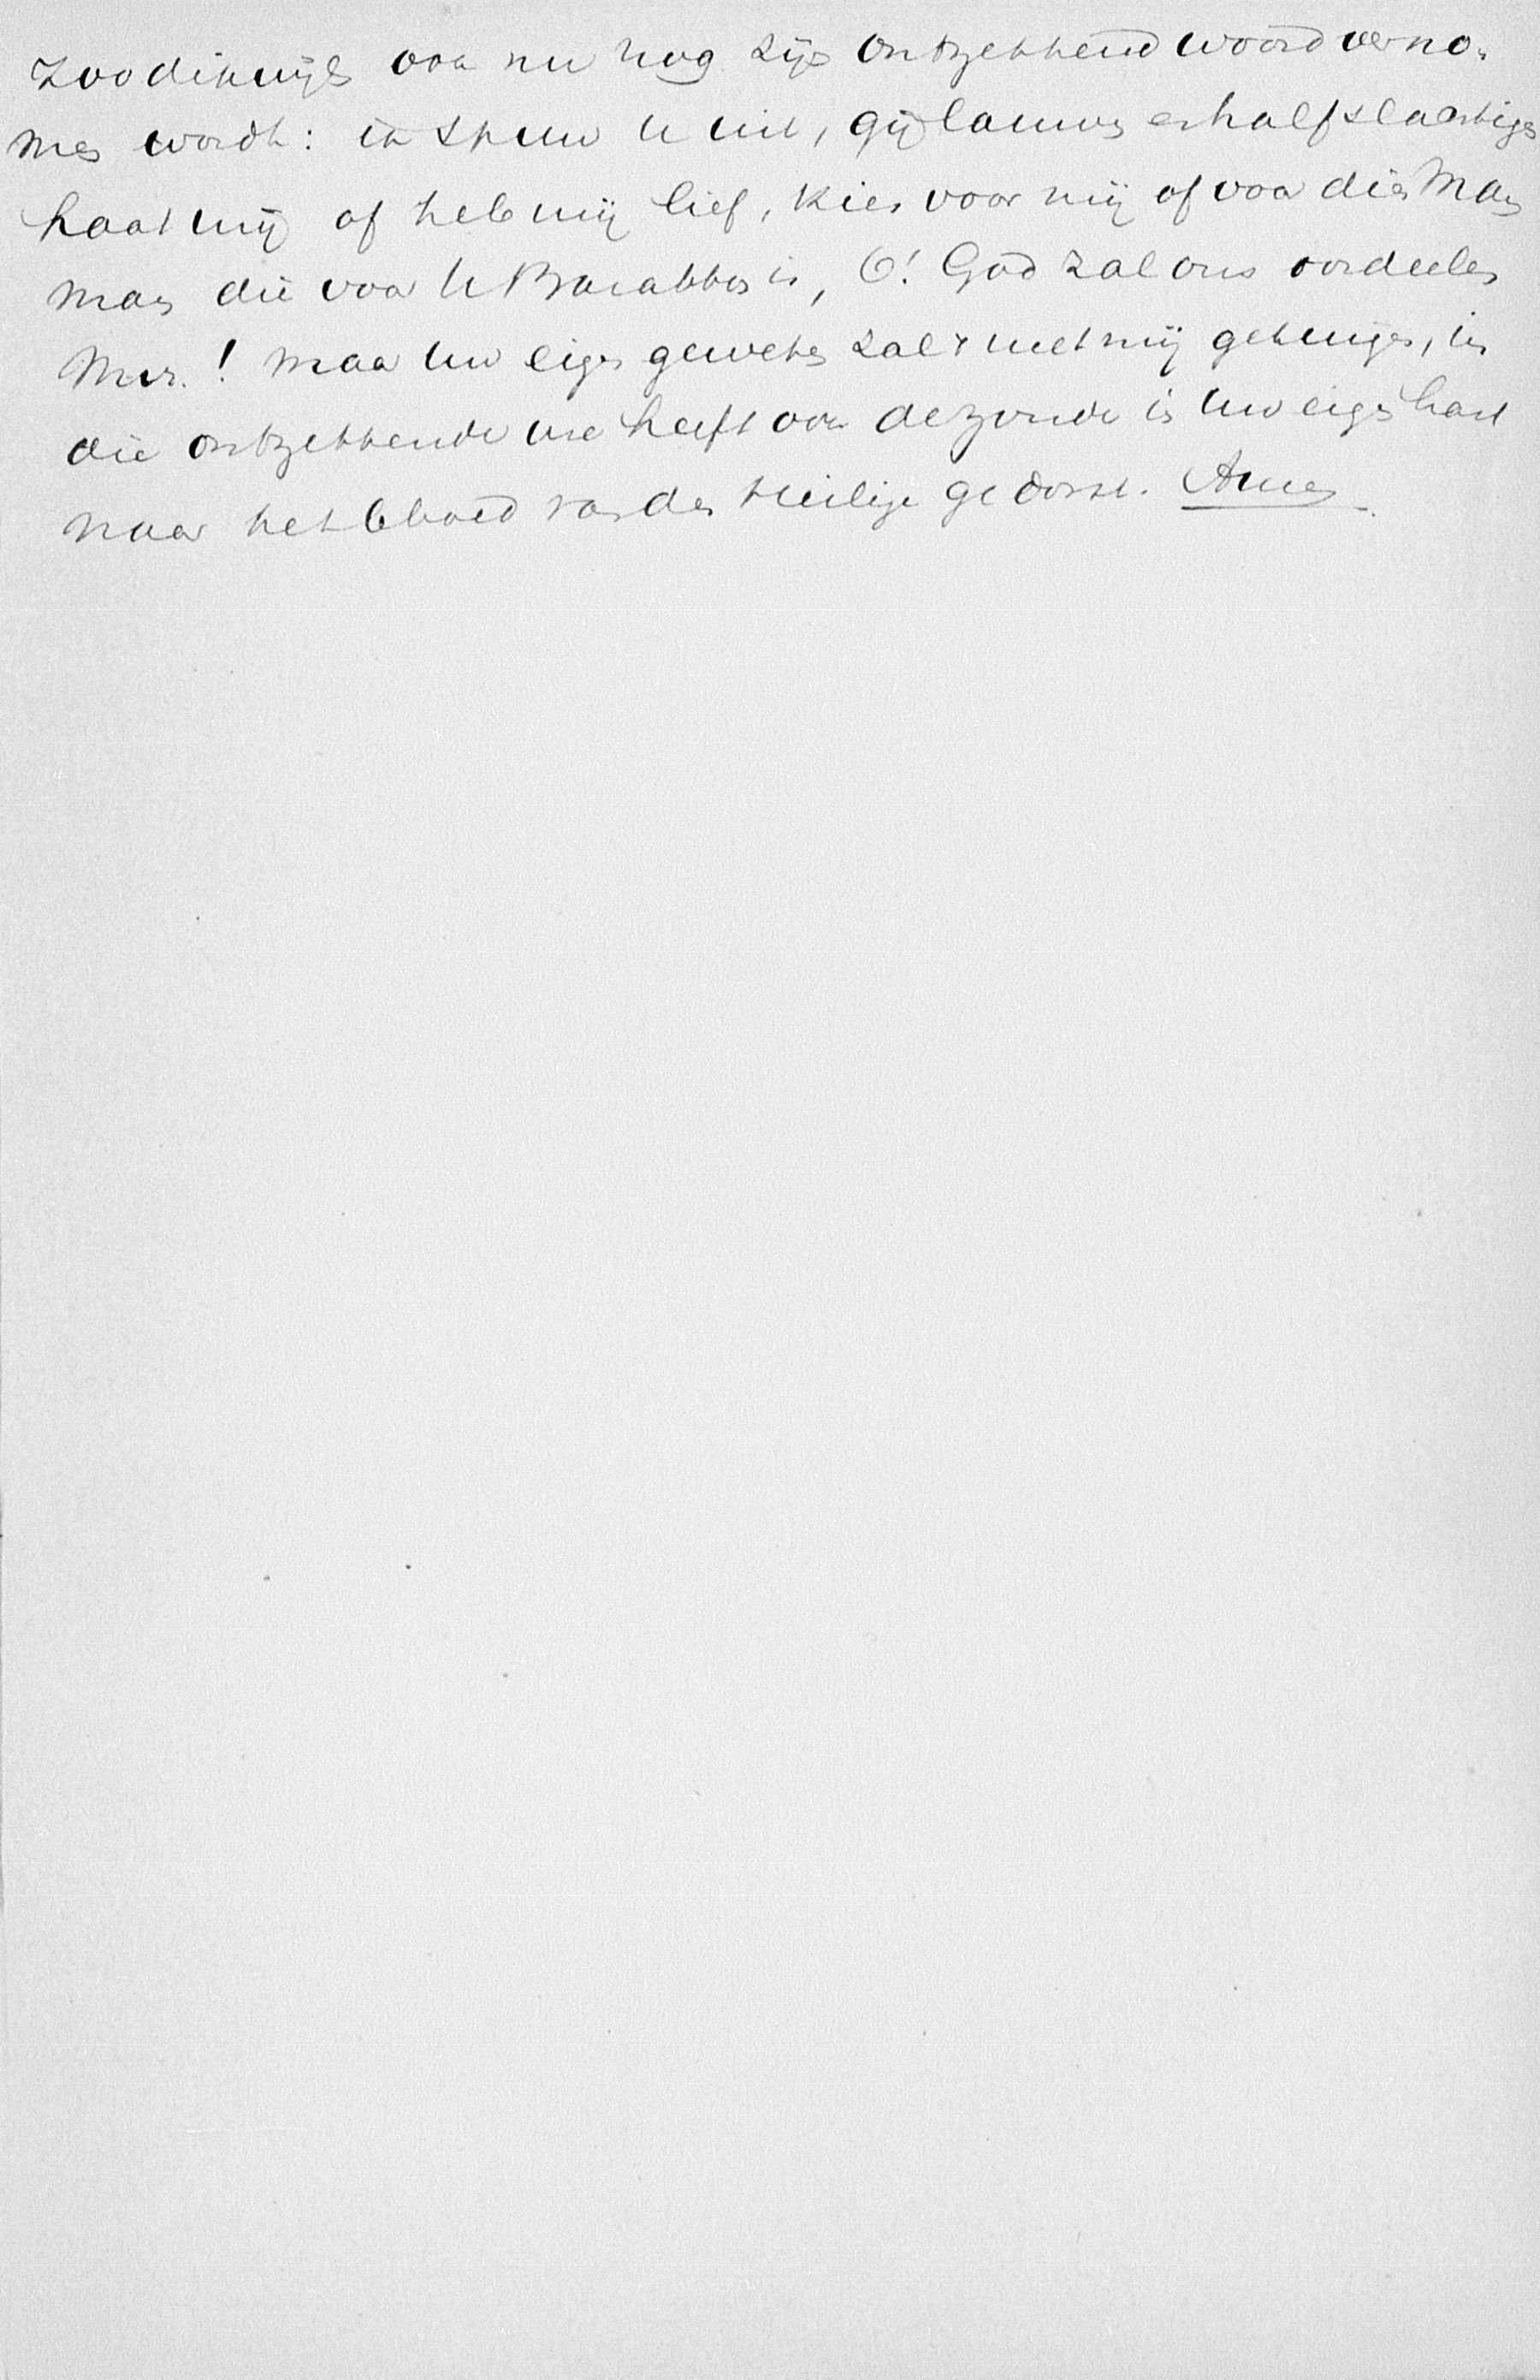 Zoodikwijls ook nu nog zijn ontzettend woord verno-
men wordt: ik spuw u uit, gij lauwen en halfslachtigen
haat mij of heb mij lief, kies voor mij of voor dien Man
man die voor U Barabbas is, O! God zal ons oordeelen
M.Gr.! maar Uw eigen geweten zal 't met mij getuigen, in
die ontzettende ure heeft ook de zonde in Uw eigen hart
naar het bloed van den Heilige gedorst. Amen